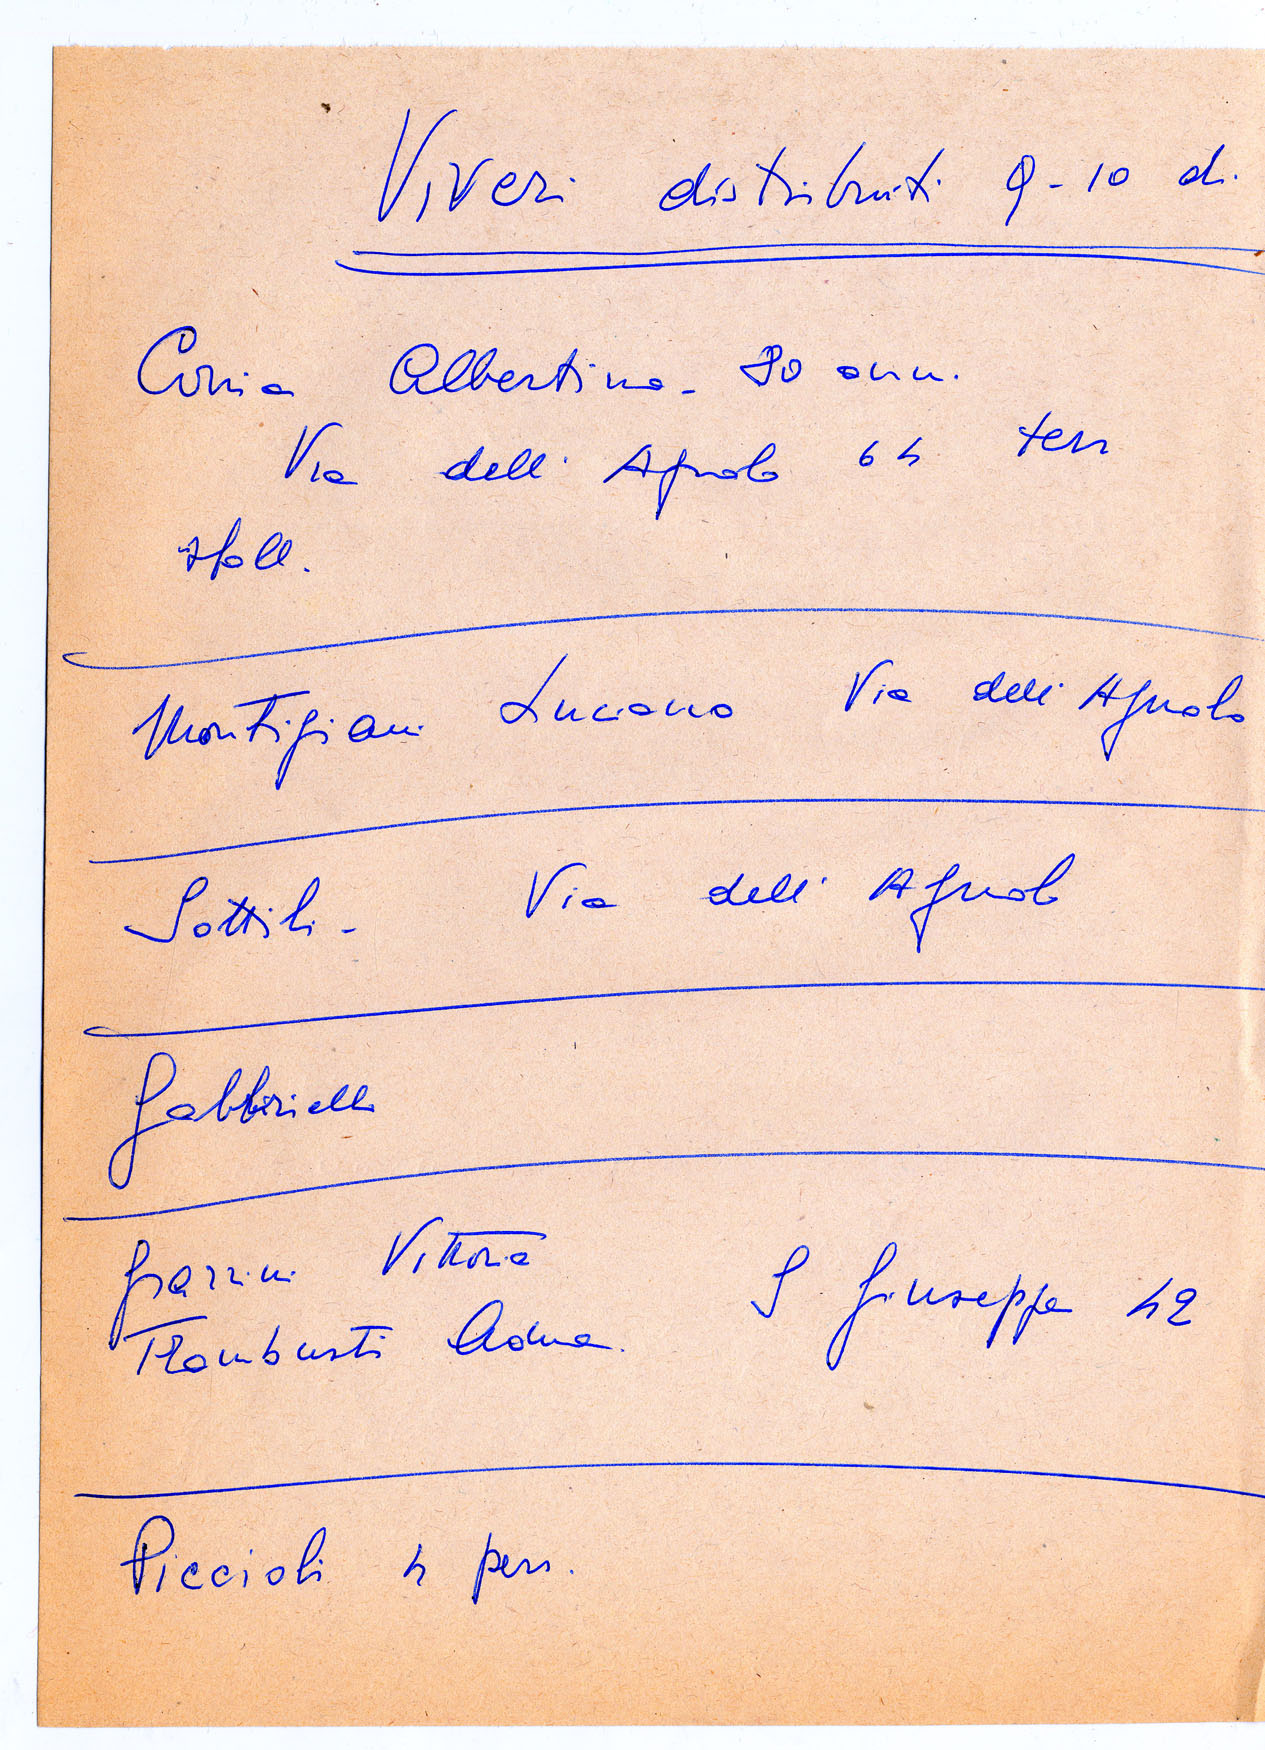 Viveri distribuiti 9-10 di.
Albertina - 80 ann.
Via dell' Agnolo 64 terr
sfoll.
Montigiani Luciano Via dell' Agnolo
Sottili - Via dell' Agnolo
Gabbrielli
Grazzini Vittoria S Giuseppe 42
Trambusti Adma.
Piccioli 4 pers.